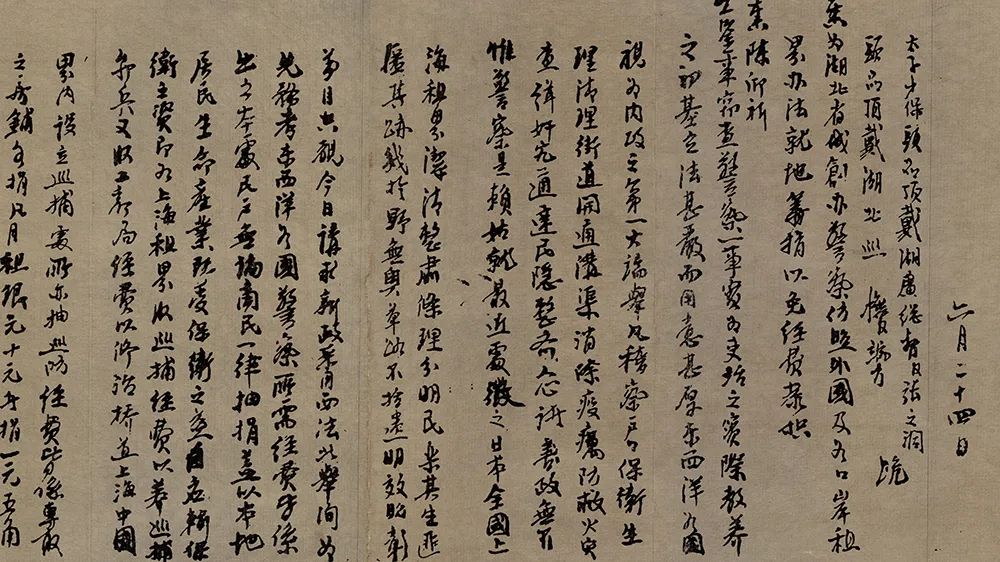 六月二十四日
太子少保頭品頂戴湖廣總督臣張之洞 跪
頭品頂戴湖北巡撫 端方
奏為湖北省城創辦警察仿照外國及各口岸租
界办法就地籌捐以免經費恭摺
奏陳仰祈
聖鑒事窃查警察一事實為吏治之實際教養
之初基立法甚嚴而用意甚厚東西洋各國
視為內政之第一大端舉凡稽察戶口保衛生
理清理街道開通溝渠消除疫癘防救火災
查緝奸宄通達民隱整齊人心諸善政無不
惟警察是賴姑就最近處徵之日本全國上
海租界潔清整肅條理分明民樂其生匪
匿其跡錢於野無輿草路不拾遺明效昭彰
萬目共覩今日講求新政采用西法此舉洵為
先務考東西洋各國警察所需經費多係
出之本處民戶無論商民一律抽捐蓋以本地
居民生命產業既受保衛之益自应輸保
衛之資即如上海租界收巡捕經費以養巡捕
弁兵又收工部局經費以修治橋道上海中國
界內設立巡捕處所亦抽巡防經費皆係專取
之房鋪多捐凡月租銀元十元者捐一元五角